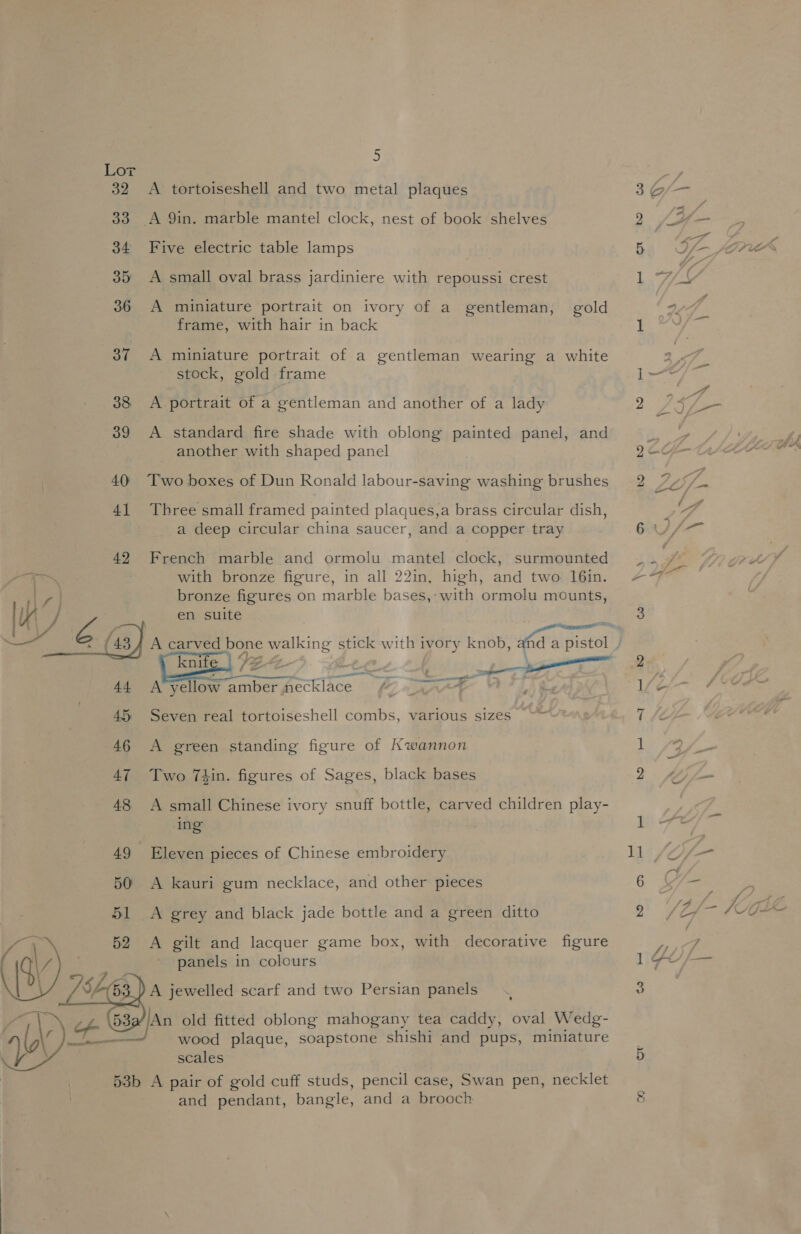 5
Lot
32 A tortoiseshell and two metal plaques 3
33 A 9in. marble mantel clock, nest of book shelves 2
34 Five electric table lamps 5
35 A small oval brass jardiniere with repoussi crest 1
36 A miniature portrait on ivory of a gentleman, gold
frame, with hair in back 1
37 A miniature portrait of a gentleman wearing a white
stock, gold frame 1
38 A portrait of a gentleman and another of a lady 2
39 A standard fire shade with oblong painted panel, and
another with shaped panel 2
40 Two boxes of Dun Ronald labour-saving washing brushes 2
41 Three small framed painted plaques, a brass circular dish,
a deep circular china saucer, and a copper tray 6
42 French marble and ormolu mantel clock, surmounted
with bronze figure, in all 22in. high, and two 16in.
bronze figures on marble bases, with ormolu mounts,
en suite 3
43 A carved bone walking stick with ivory knob, and a pistol
knife 2
44 A yellow amber necklace 1
45 Seven real tortoiseshell combs, various sizes 7
46 A green standing figure of Kwannon 1
47 Two 7½in. figures of Sages, black bases 2
48 A small Chinese ivory snuff bottle, carved children play-
ing 1
49 Eleven pieces of Chinese embroidery 11
50 A kauri gum necklace, and other pieces 6
51 A grey and black jade bottle and a green ditto 2
52 A gilt and lacquer game box, with decorative figure
panels in colours 1
53 A jewelled scarf and two Persian panels 3
53a An old fitted oblong mahogany tea caddy, oval Wedg-
wood plaque, soapstone shishi and pups, miniature
scales 5
53b A pair of gold cuff studs, pencil case, Swan pen, necklet
and pendant, bangle, and a brooch 8